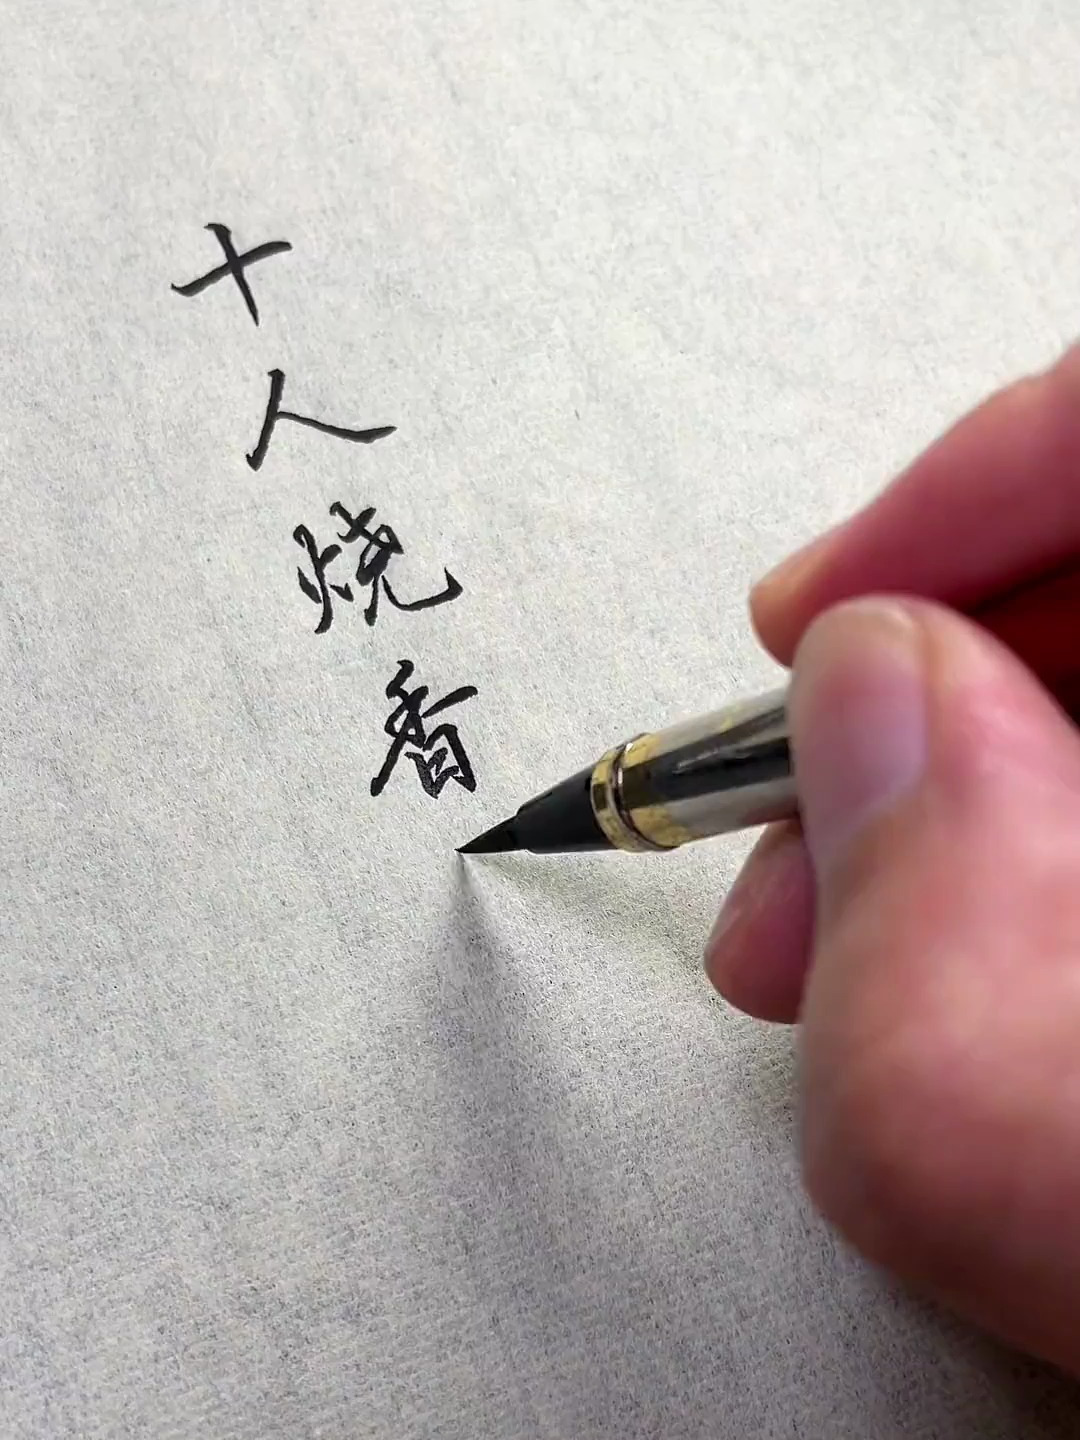 十人烧香